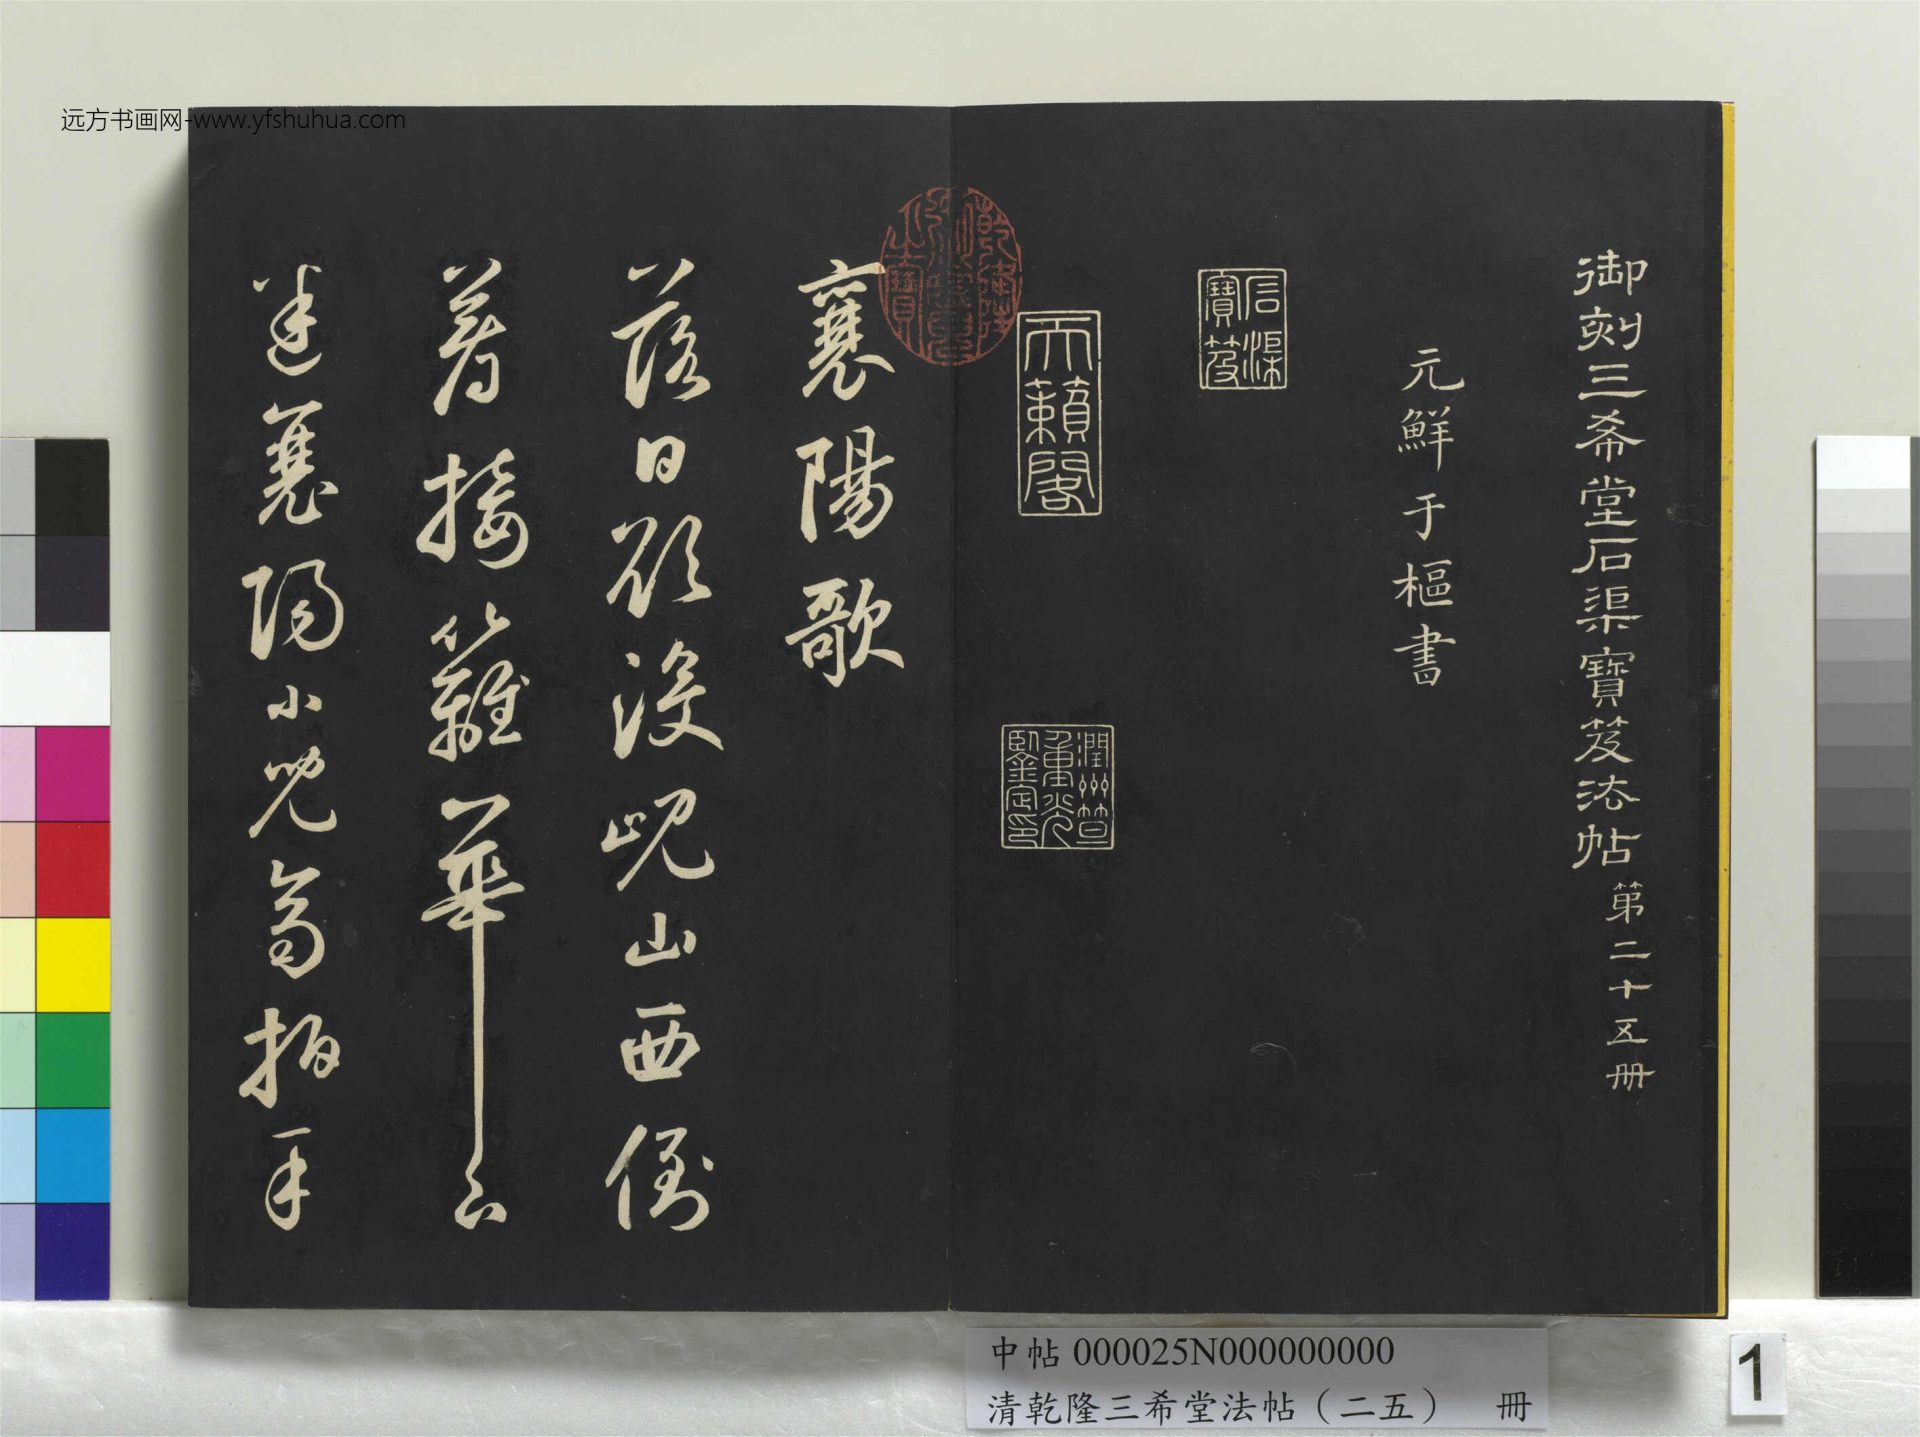 远方书画网-www.yfshuhua.com
御刻三希堂石渠寶笈法帖 第二十五册
元鮮于樞書
石渠寶笈
天籟閣
潤州笪重光鑒定印
乾隆御覽之寶
襄陽歌
落日欲沒峴山西倒
著接籬華下
迷襄陽小兒齊拍手
中帖 000025N000000000
清乾隆三希堂法帖（二五） 冊
1